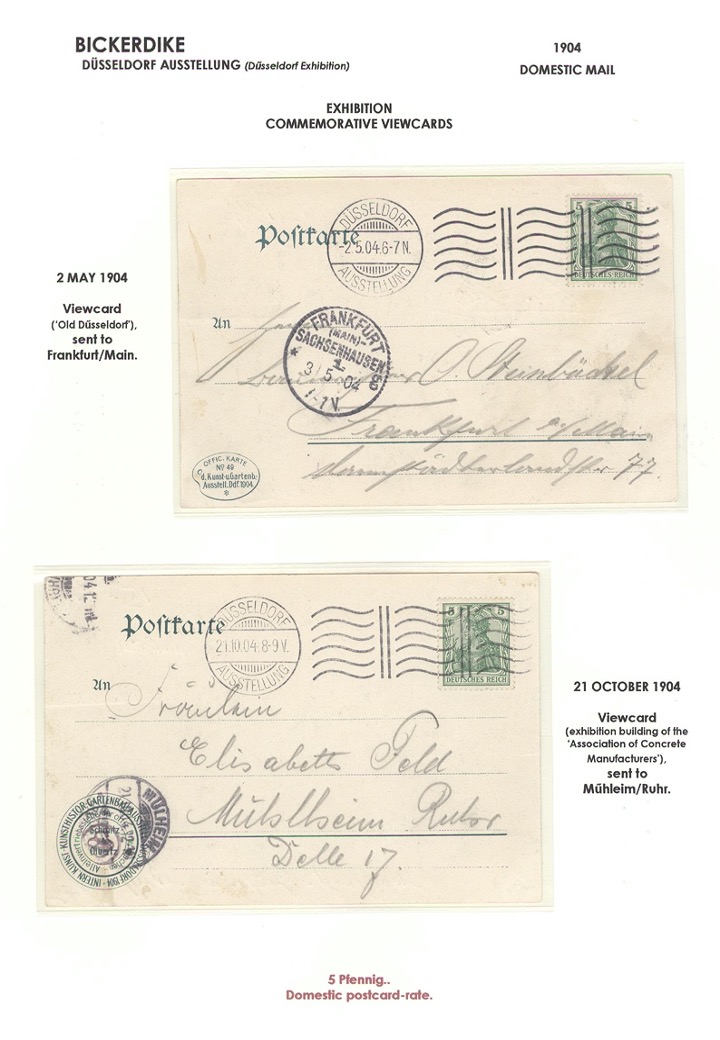 BICKERDIKE
DÜSSELDORF AUSSTELLUNG (Düsseldorf Exhibition)
1904
DOMESTIC MAIL
EXHIBITION
COMMEMORATIVE VIEWCARDS
2 MAY 1904
Viewcard
('Old Düsseldorf'),
sent to
Frankfurt/Main.
Postkarte
DÜSSELDORF
-2.5.04.6-7N.
AUSSTELLUNG
5 5
DEUTSCHES REICH
An
FRANKFURT
(MAIN)-
SACHSENHAUSEN
1.
3/5 04
1-7N
O. Steinböckel
Frankfurt a/Main
77.
OFFIC. KARTE
No 49
d.Kunst-u.Gartenb.
Ausstell.Ddf.1904.
Postkarte
DÜSSELDORF
21.10.04.8-9V.
AUSSTELLUNG
5 5
DEUTSCHES REICH
An
Fräulein
Elisabeth Feld
Mühlheim Ruhr
Delle 17.
MÜLHEIM
INTERN. KUNST-KUNSTHISTOR-GARTENBAU
DÜSSELDORF 1904
21 OCTOBER 1904
Viewcard
(exhibition building of the
'Association of Concrete
Manufacturers'),
sent to
Mühleim/Ruhr.
5 Pfennig..
Domestic postcard-rate.